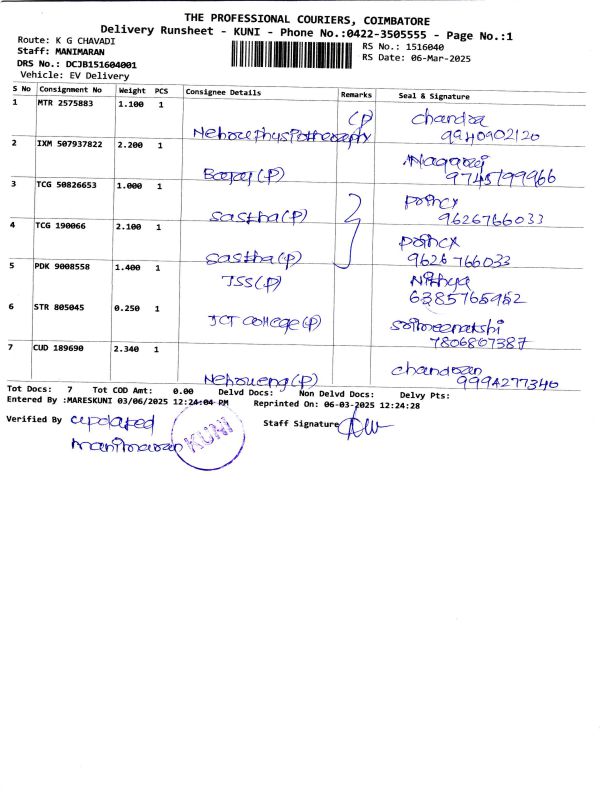 THE PROFESSIONAL COURIERS, COIMBATORE
Delivery Runsheet - KUNI - Phone No.:0422-3505555 - Page No.:1
Route: K G CHAVADI
RS No.: 1516040
Staff: MANIMARAN
RS Date: 06-Mar-2025
DRS No.: DCJB151604001
Vehicle: EV Delivery
S No Consignment No Weight PCS Consignee Details Remarks Seal & Signature
1 MTR 2575883 1.100 1 (P) chandra
Nehru Physiotheraphy 9940902120
2 IXM 507937822 2.200 1 Nagaraj
Bajaj (P)
3 TCG 50826653 1.000 1
Sastha (P) 9626766033
4 TCG 190066 2.100 1
Sastha (P) 9626766033
5 PDK 9008558 1.400 1 JSS (P) Nithya
6385765952
6 STR 805045 0.250 1 JCT College (P)
7806807387
7 CUD 189690 2.340 1
Nehru eng (P) 9994277340
Tot Docs: 7 Tot COD Amt: 0.00 Delvd Docs: Non Delvd Docs: Delvy Pts:
Entered By :MARESKUNI 03/06/2025 12:24:04 PM Reprinted On: 06-03-2025 12:24:28
Verified By updated
Manimaran
KUNI
Staff Signature